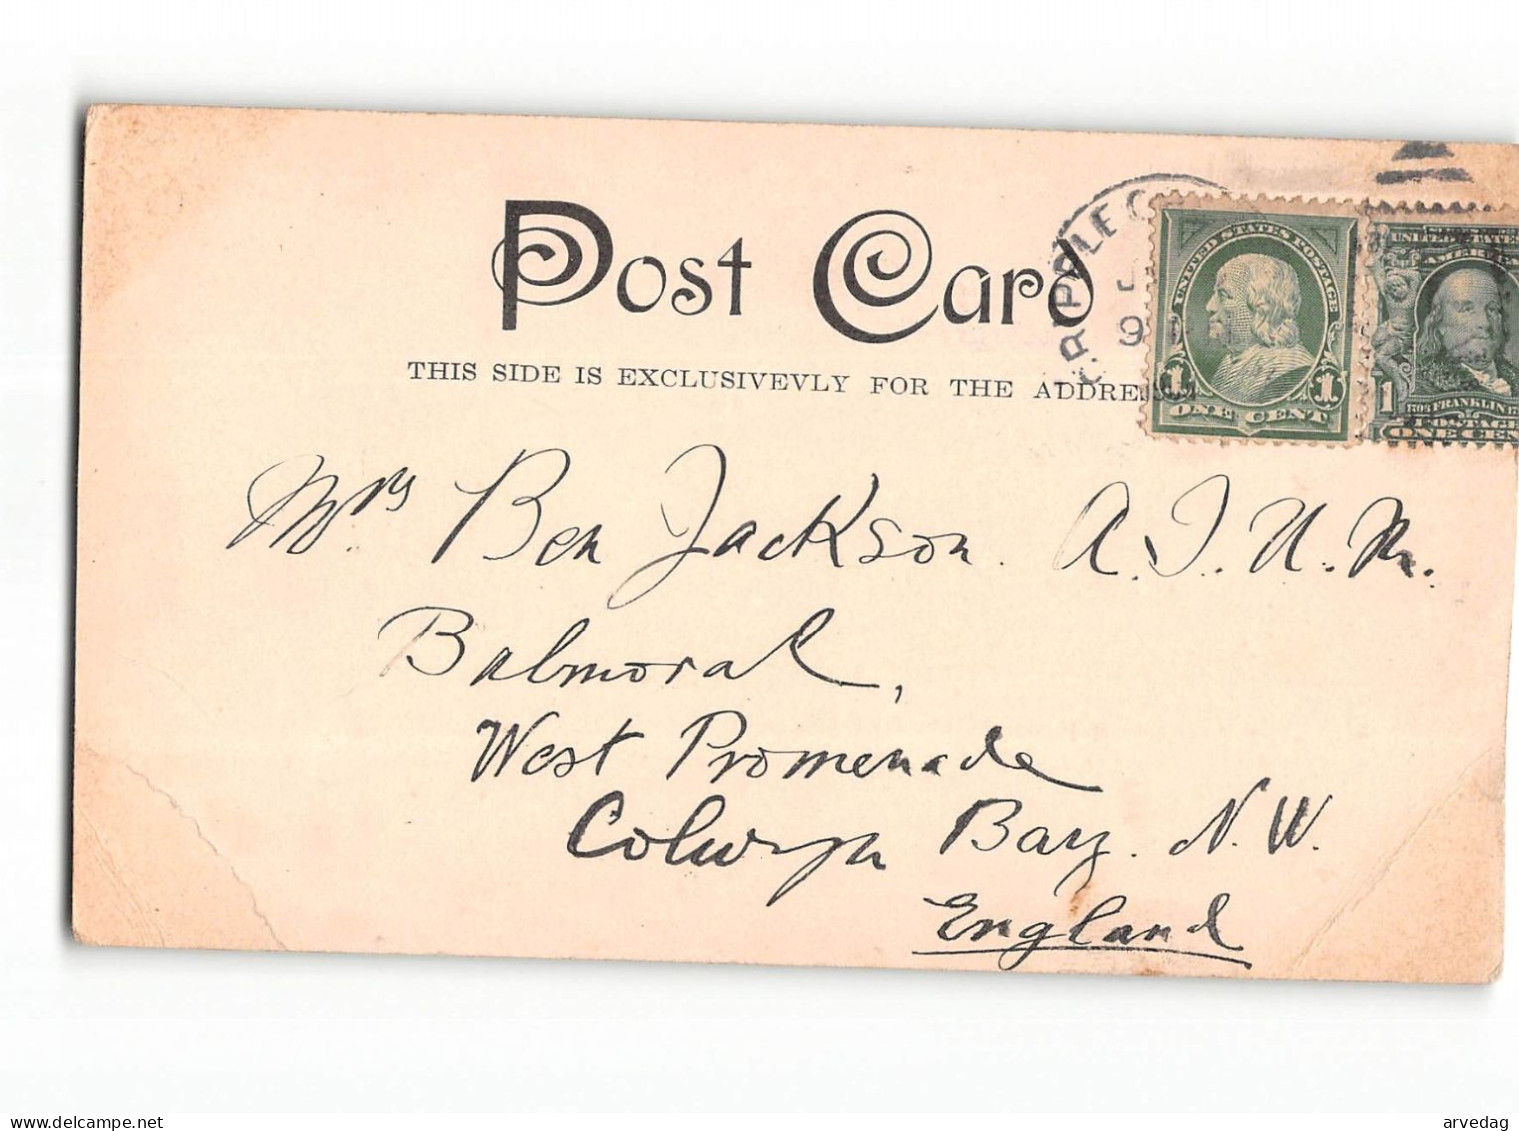 Post Card
THIS SIDE IS EXCLUSIVEVLY FOR THE ADDRE
CRIPPLE C
J
9
UNITED STATES POSTAGE
1 1
ONE CENT
AMERICA
1
FRANKLIN
POSTAGE
ONE CEN
Mrs Ben Jackson. A.T.U.M.
Balmoral,
West Promenade
Colwyn Bay. N.W.
England
delcampe.net
arvedag